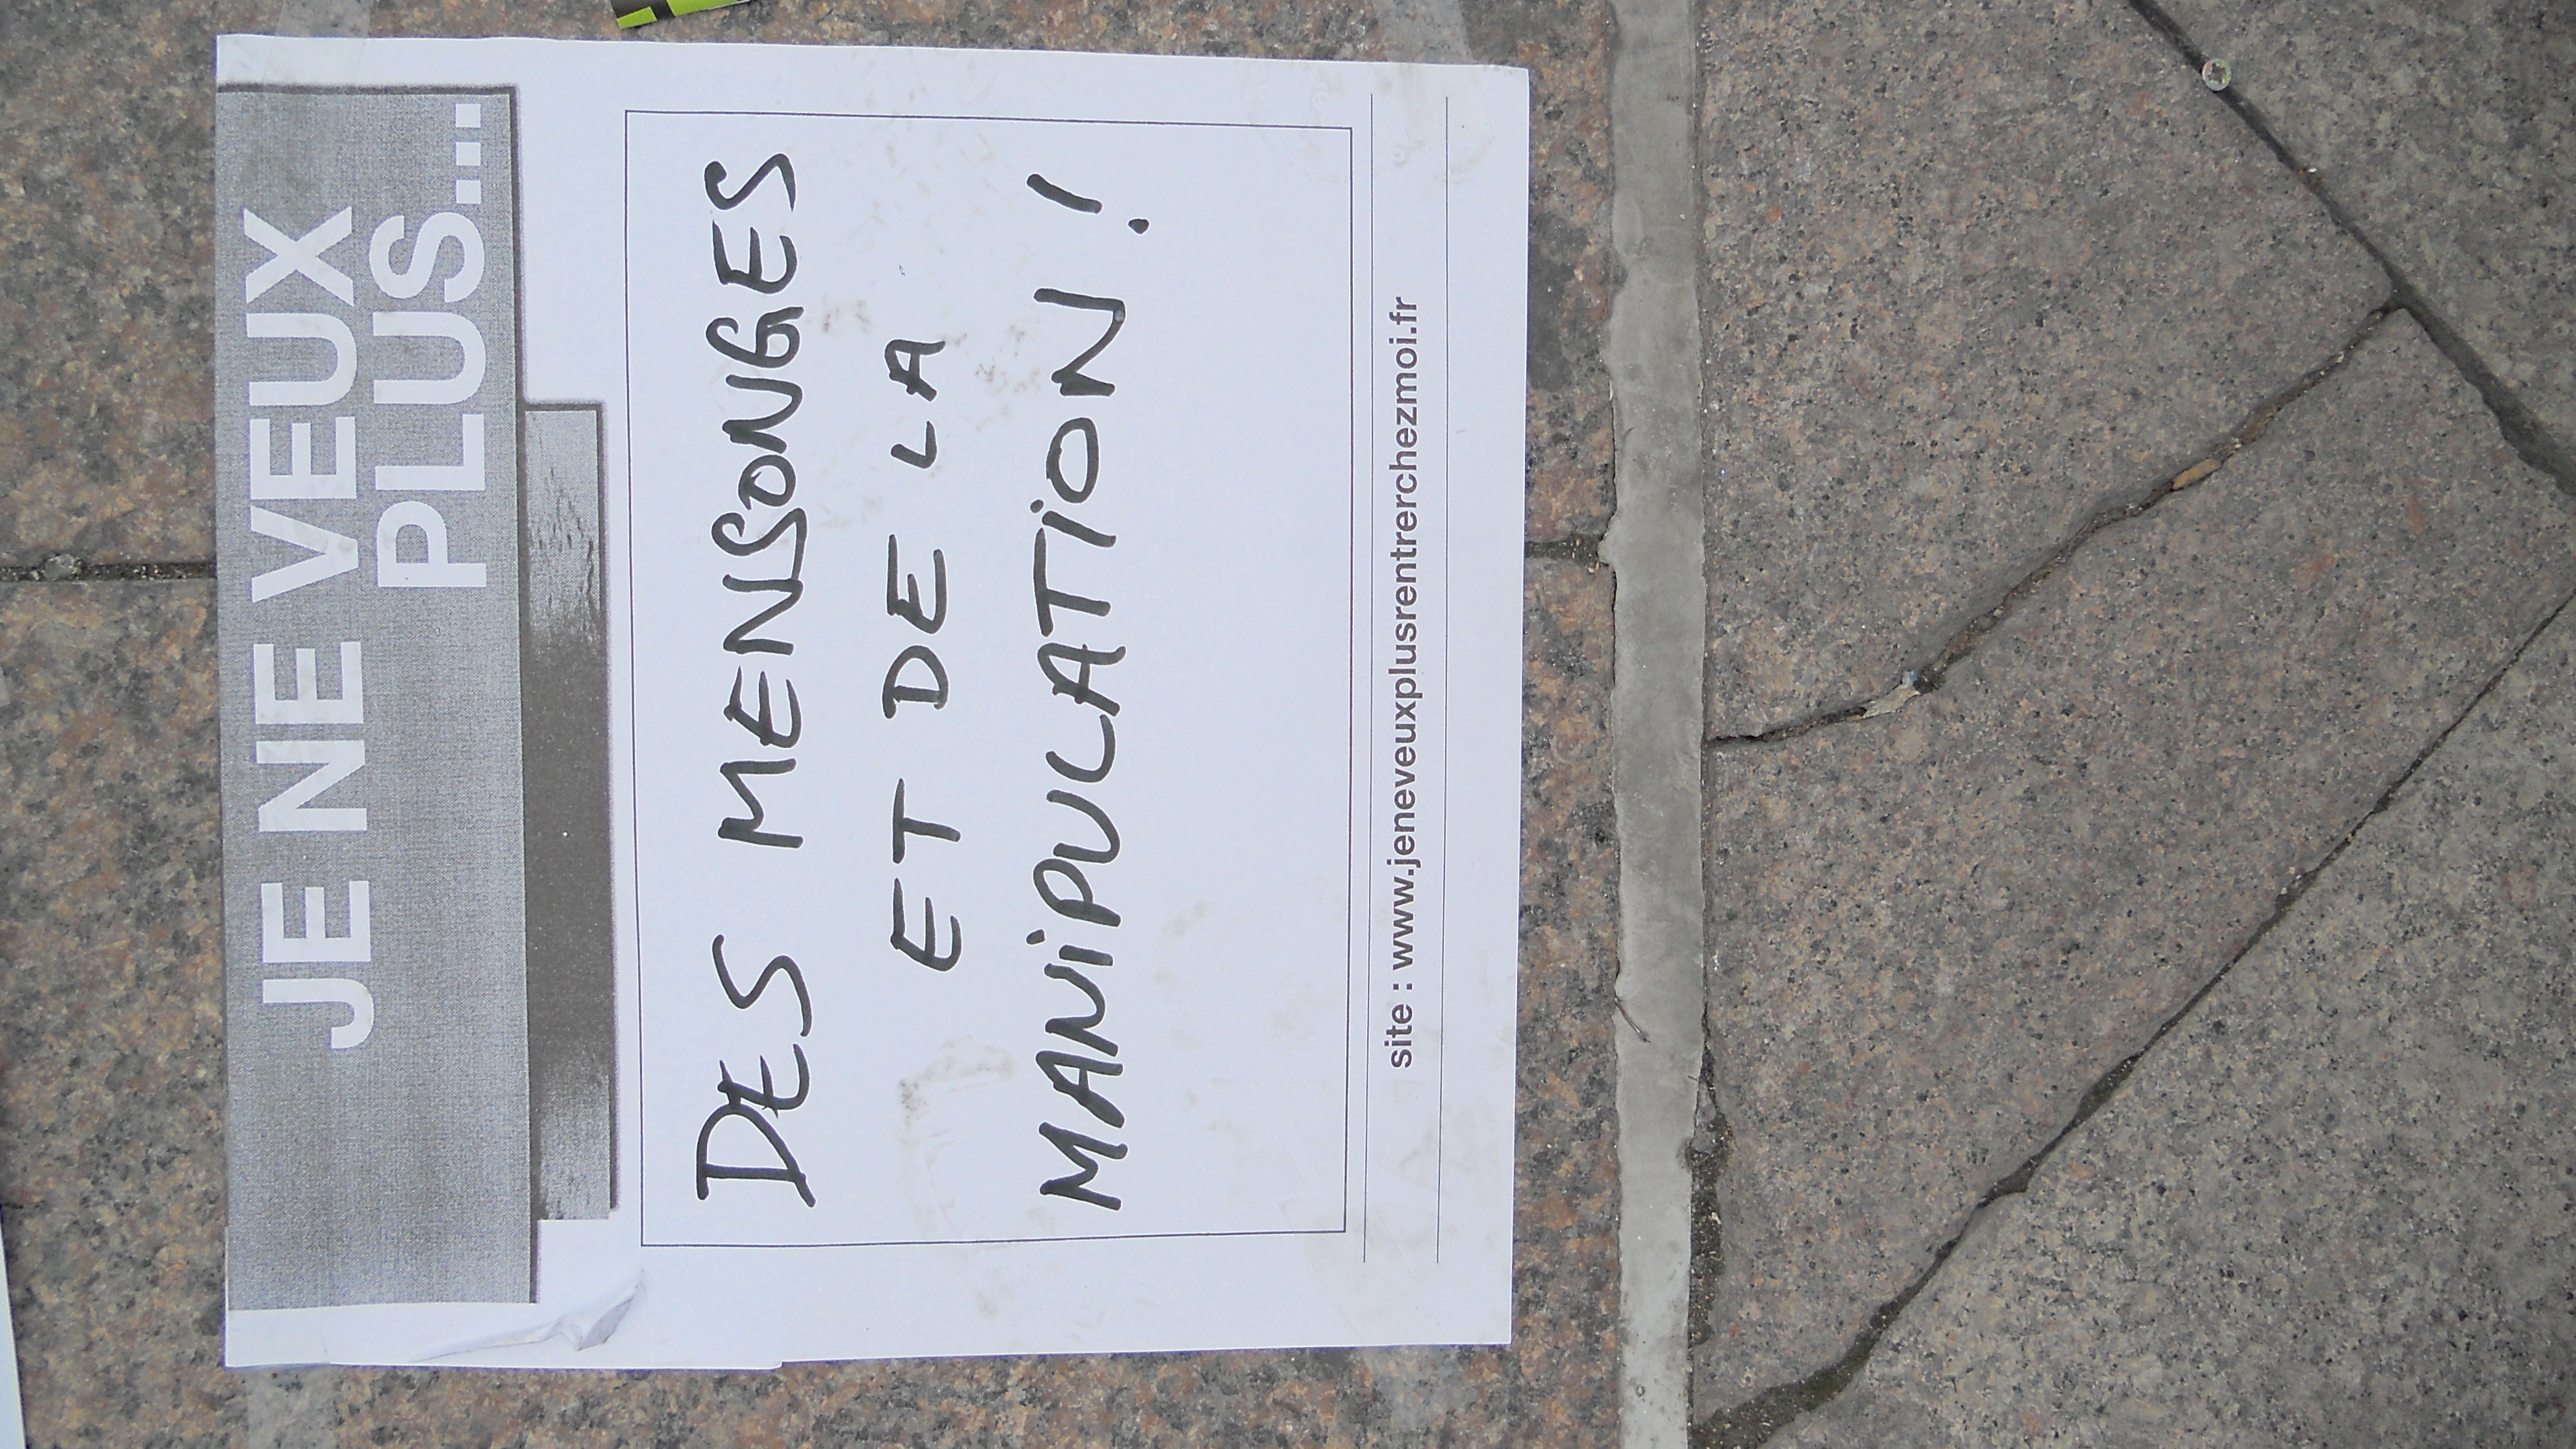 JE NE VEUX
PLUS...
DES MENSONGES
ET DE LA
MANiPULATiON !
site : www.jeneveuxplusrentrerchezmoi.fr